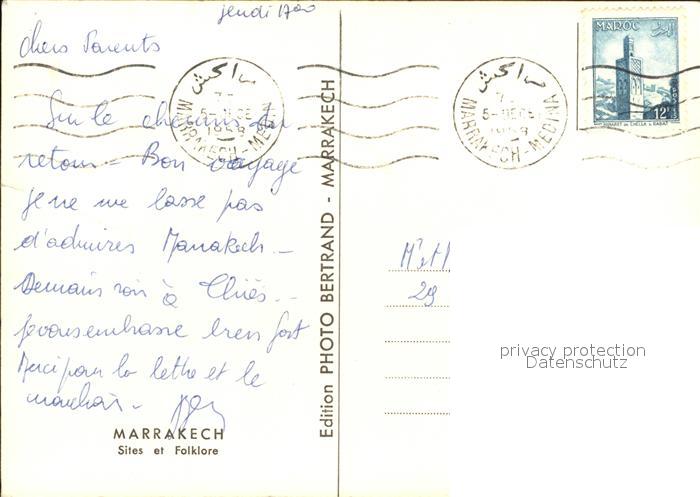 jeudi 17h00
chers Parents
Sur le chemin du
retour - Bon voyage
je ne me lasse pas
d'admirer Marrakech -
Demain soir à
je vous embrasse bien fort
Merci pour la lettre et le
MARRAKECH
Sites et Folklore
Edition PHOTO BERTRAND - MARRAKECH
مراكش
5-DEC
1958
MARRAKECH-MEDINA
مراكش
5-DEC
1958
MARRAKECH-MEDINA
MAROC
المغرب
12F
MINARET DE CHELLA A RABAT
Mr et
29
privacy protection
Datenschutz